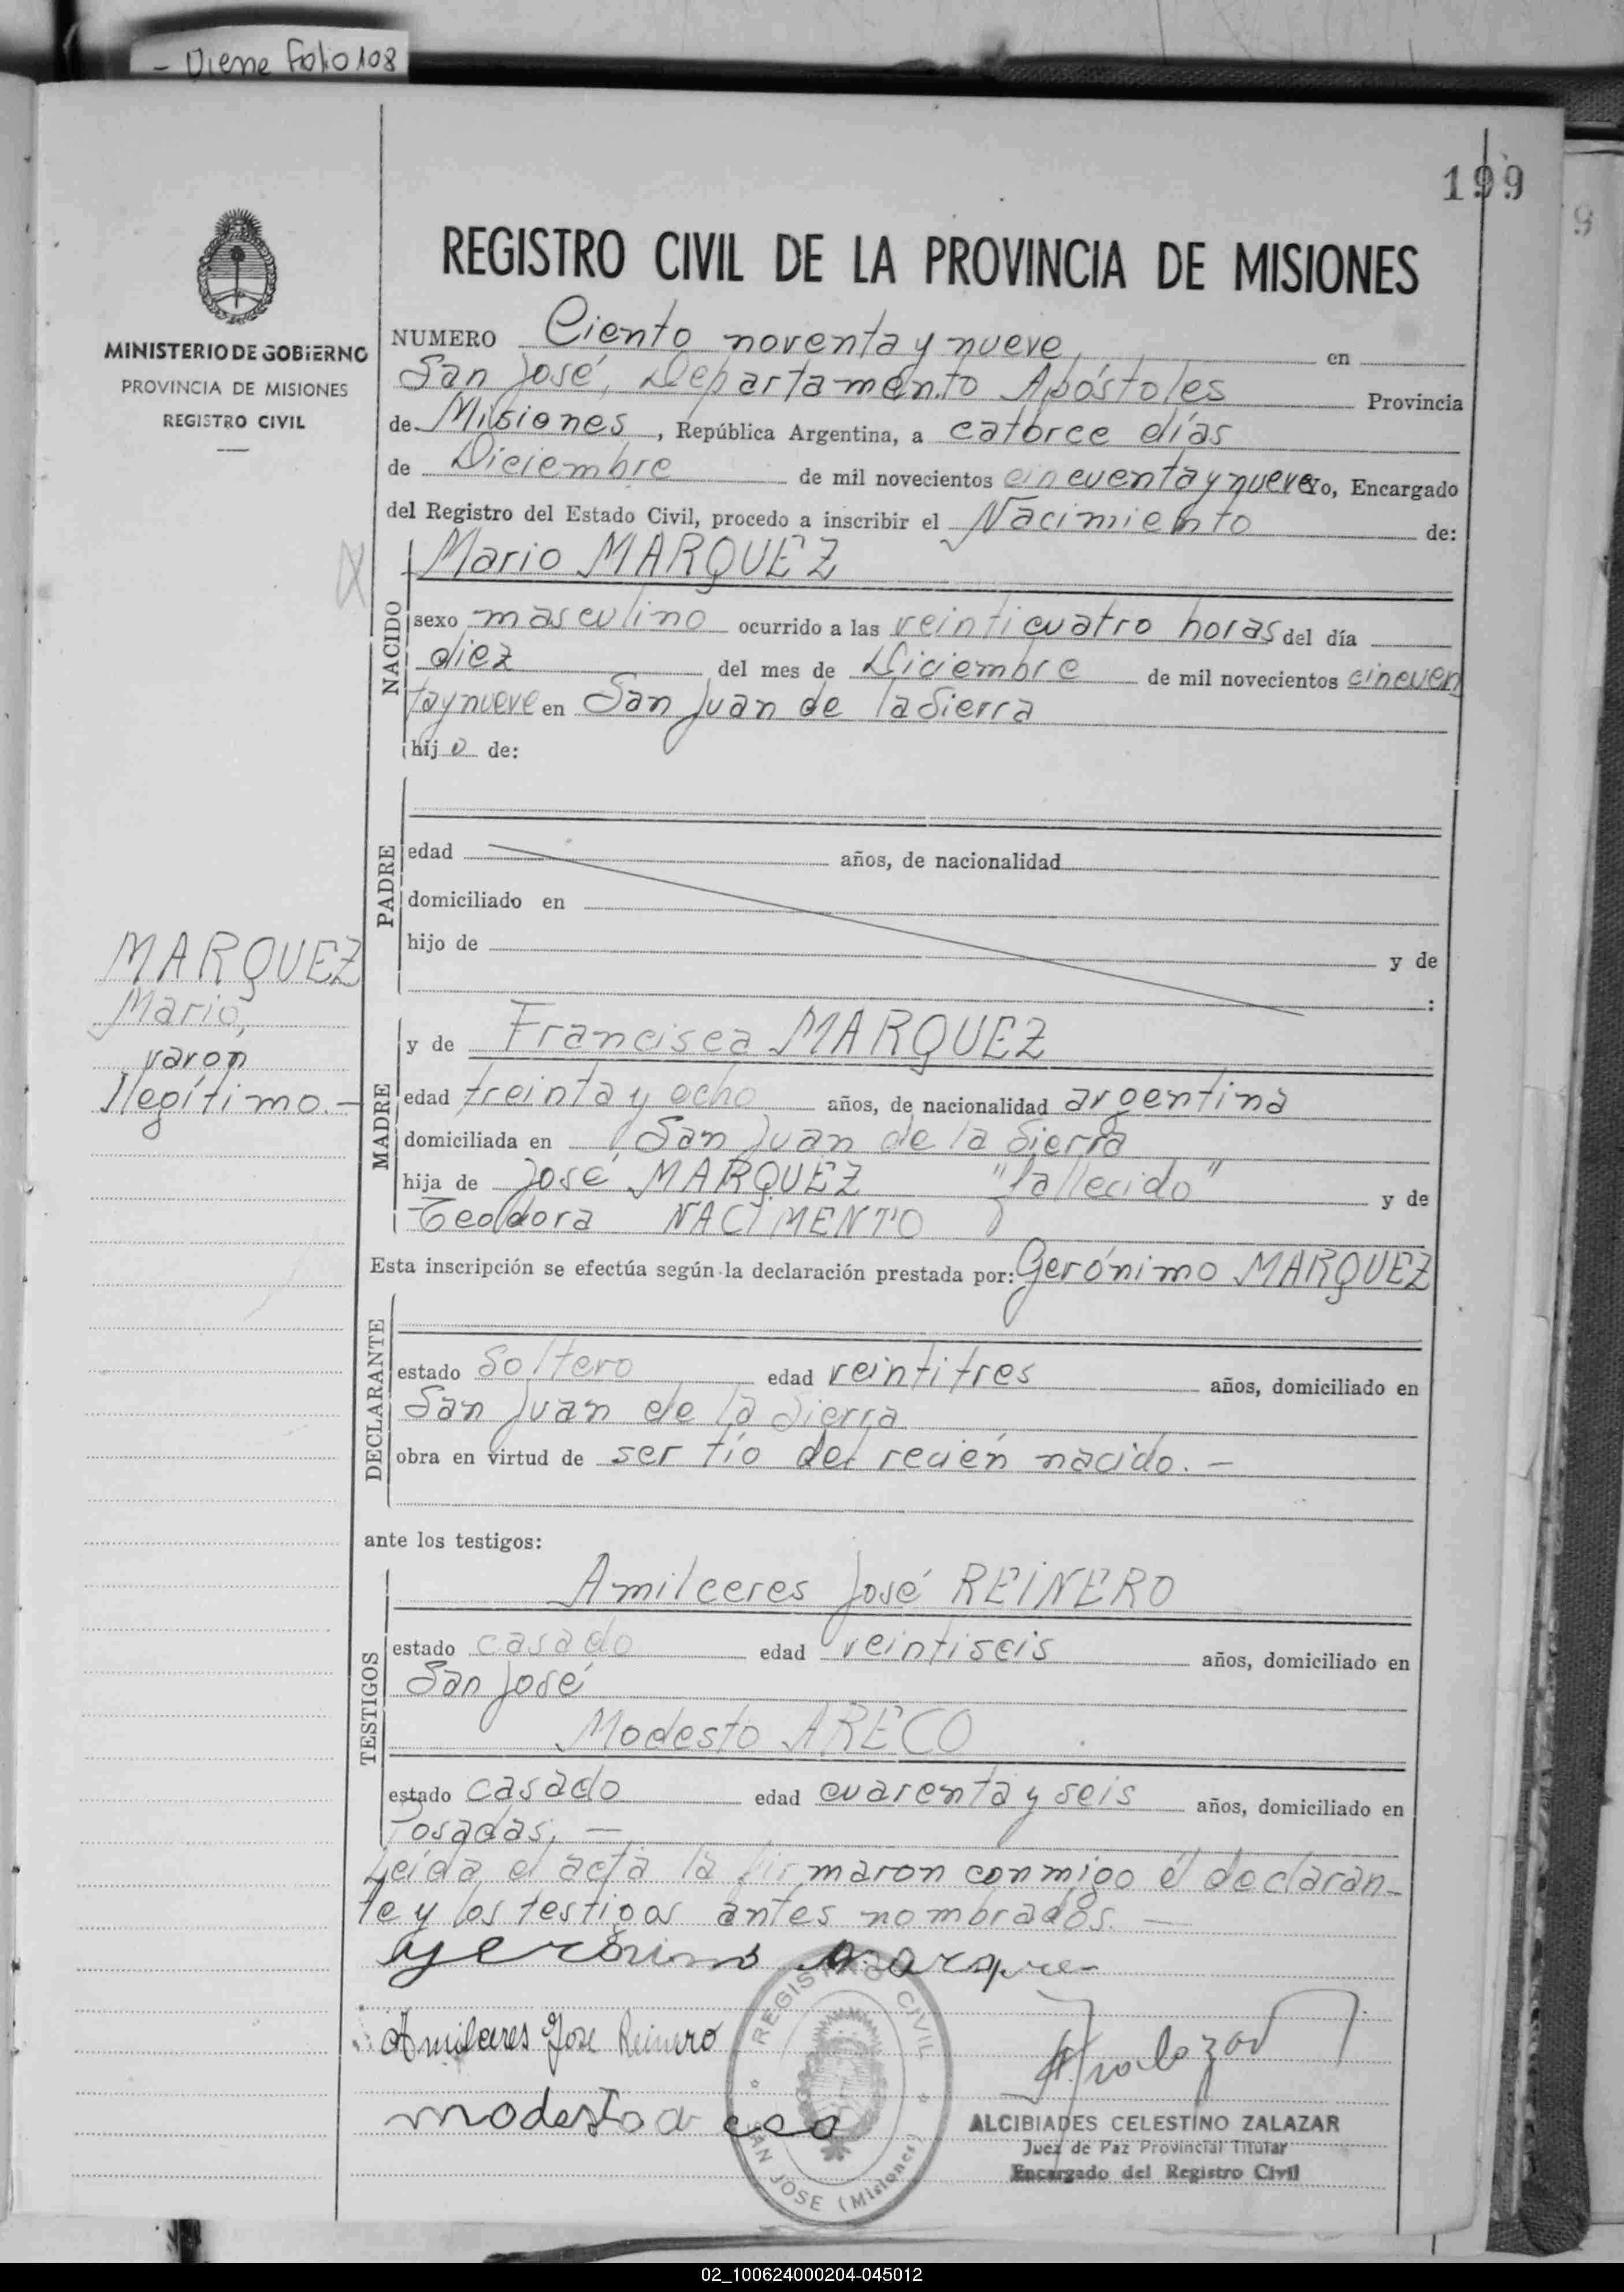 - Viene Folio 108
199
9
REGISTRO CIVIL DE LA PROVINCIA DE MISIONES
MINISTERIO DE GOBIERNO
PROVINCIA DE MISIONES
REGISTRO CIVIL
NUMERO Ciento noventa y nueve, en
San José, Departamento Apóstoles Provincia
de Misiones, República Argentina, a catorce días
de Diciembre de mil novecientos cincuenta y nueve Yo, Encargado
del Registro del Estado Civil, procedo a inscribir el Nacimiento de:
NACIDO
Mario MARQUEZ
sexo masculino ocurrido a las veinticuatro horas del día
diez del mes de Diciembre de mil novecientos cincuen
ta y nueve en San Juan de la Sierra
hijo de:
PADRE
edad años, de nacionalidad
domiciliado en
hijo de y de
:
MARQUEZ
Mario,
varón
Ilegítimo.-
MADRE
y de Francisca MARQUEZ
edad treinta y ocho años, de nacionalidad argentina
domiciliada en San Juan de la Sierra
hija de José MARQUEZ "fallecido" y de
Teodora NACIMENTO
Esta inscripción se efectúa según la declaración prestada por: Gerónimo MARQUEZ
DECLARANTE
estado Soltero edad veintitres años, domiciliado en
San Juan de la Sierra
obra en virtud de ser tío del recién nacido. -
ante los testigos:
TESTIGOS
Amilceres José REINERO
estado casado edad veintiseis años, domiciliado en
San José
Modesto ARECO
estado casado edad cuarenta y seis años, domiciliado en
Posadas, -
Leida el acta la firmaron conmigo el declaran-
te y los testigos antes nombrados. -
Gerónimo Marquez
Amilceres Jose Reinero
modesto areco
REGISTRO CIVIL
SAN JOSE (Misiones)
ALCIBIADES CELESTINO ZALAZAR
Juez de Paz Provincial Titular
Encargado del Registro Civil
02_100624000204-045012